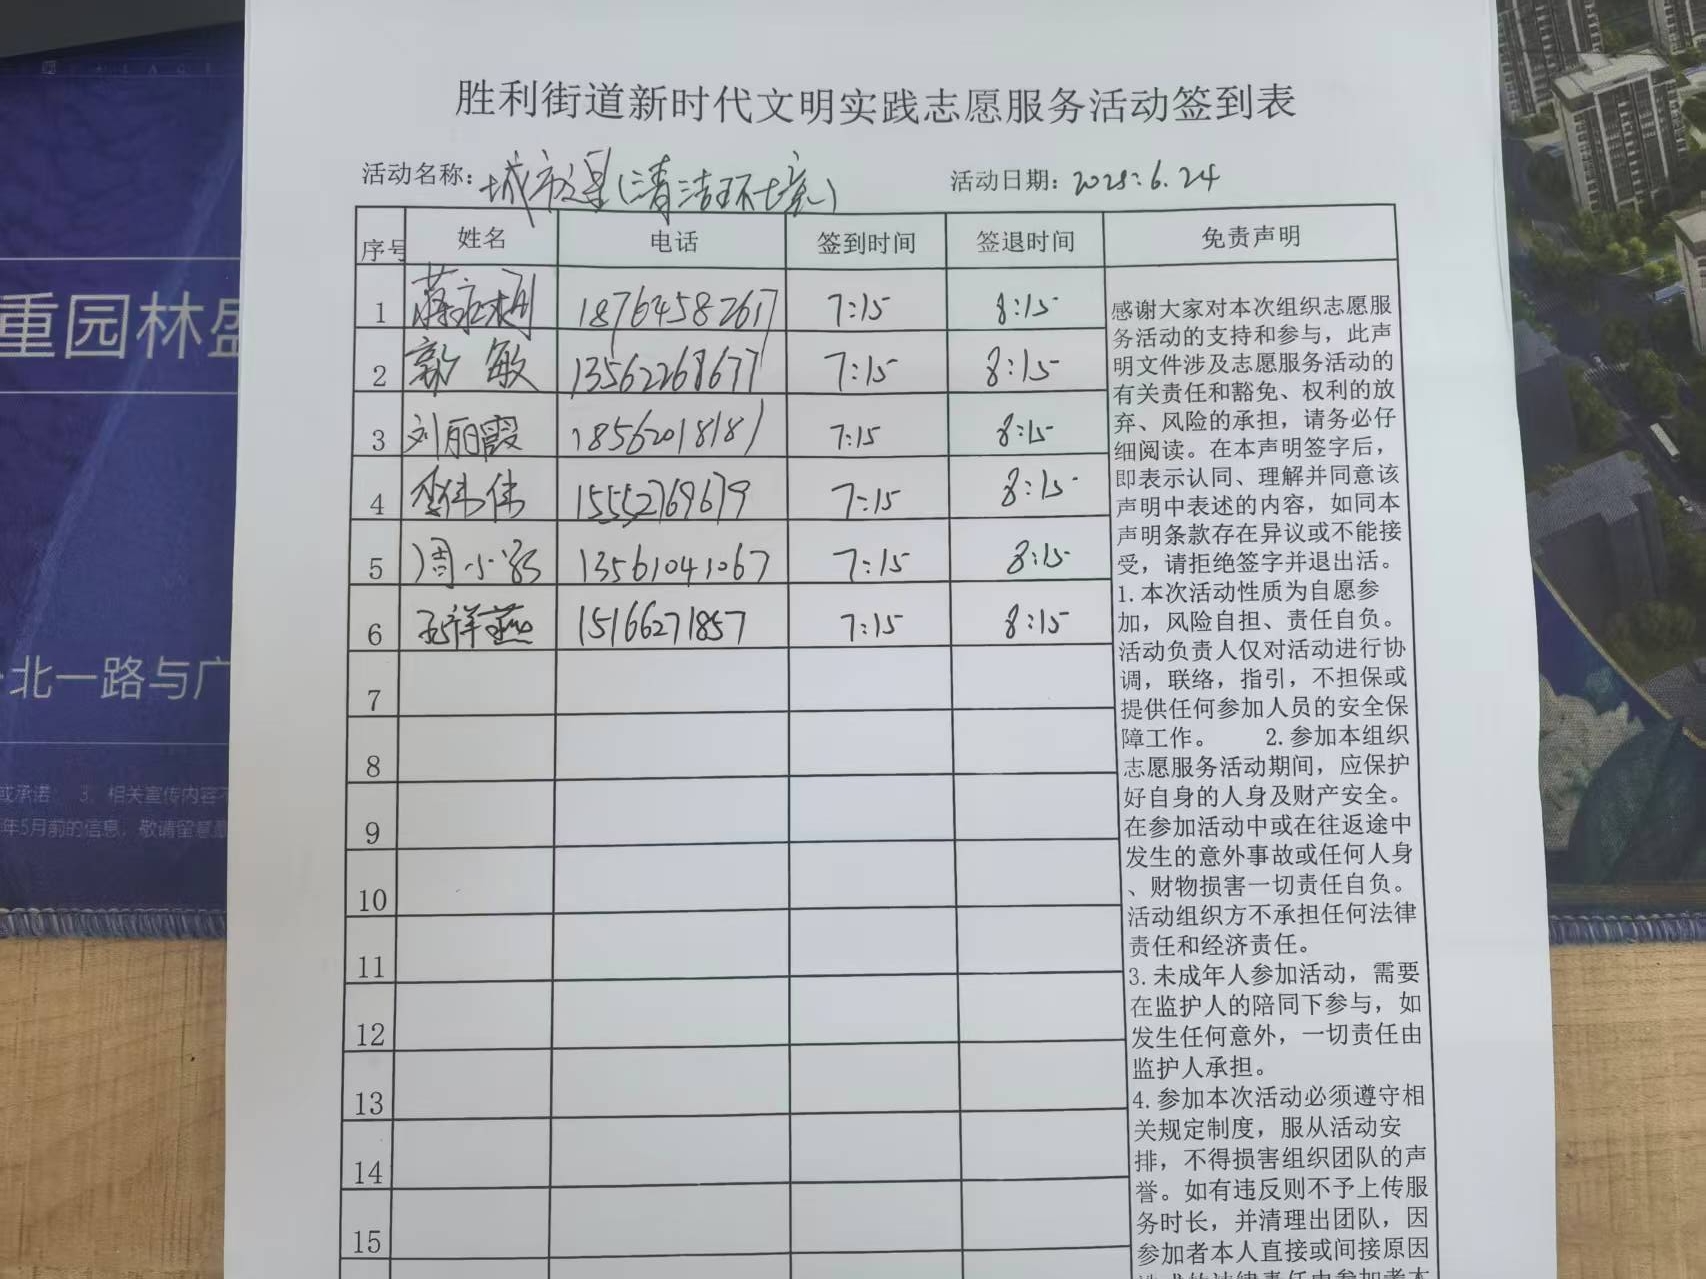 胜利街道新时代文明实践志愿服务活动签到表
活动名称: (清洁环境) 活动日期: 2025.6.24
序号 姓名 电话 签到时间 签退时间 免责声明
1 18764582617 7:15 8:15
2 郭敏 13562268677 7:15 8:15
3 刘丽霞 18562018181 7:15 8:15
4 李伟伟 15552769679 7:15 8:15
5 周小 13561041067 7:15 8:15
6 祥燕 15166271857 7:15 8:15
7
8
9
10
11
12
13
14
15
感谢大家对本次组织志愿服
务活动的支持和参与，此声
明文件涉及志愿服务活动的
有关责任和豁免、权利的放
弃、风险的承担，请务必仔
细阅读。在本声明签字后，
即表示认同、理解并同意该
声明中表述的内容，如同本
声明条款存在异议或不能接
受，请拒绝签字并退出活。
1.本次活动性质为自愿参
加，风险自担、责任自负。
活动负责人仅对活动进行协
调，联络，指引，不担保或
提供任何参加人员的安全保
障工作。 2.参加本组织
志愿服务活动期间，应保护
好自身的人身及财产安全。
在参加活动中或在往返途中
发生的意外事故或任何人身
、财物损害一切责任自负。
活动组织方不承担任何法律
责任和经济责任。
3.未成年人参加活动，需要
在监护人的陪同下参与，如
发生任何意外，一切责任由
监护人承担。
4.参加本次活动必须遵守相
关规定制度，服从活动安
排，不得损害组织团队的声
誉。如有违反则不予上传服
务时长，并清理出团队，因
参加者本人直接或间接原因
重园林盛
北一路与广
或承诺 3、相关宣传内容不
年5月前的信息，敬请留意最